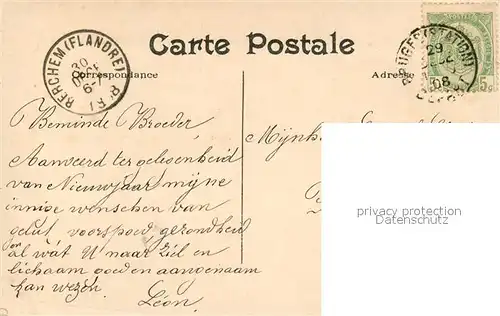 Carte Postale
Correspondance
Adresse
BERCHEM (FLANDRE)
30
DECE
6-7
BRUGGE (STATION)
29
08
5c
Beminde Broeder,
Mijnh
Aanveerd ter gelegenheid
van Nieuwjaar mijne
innige wenschen van
geluk voorspoed gezondheid
en al wat U naar ziel en
lichaam goed en aangenaam
kan wezen.
Léon.
privacy protection
watermark